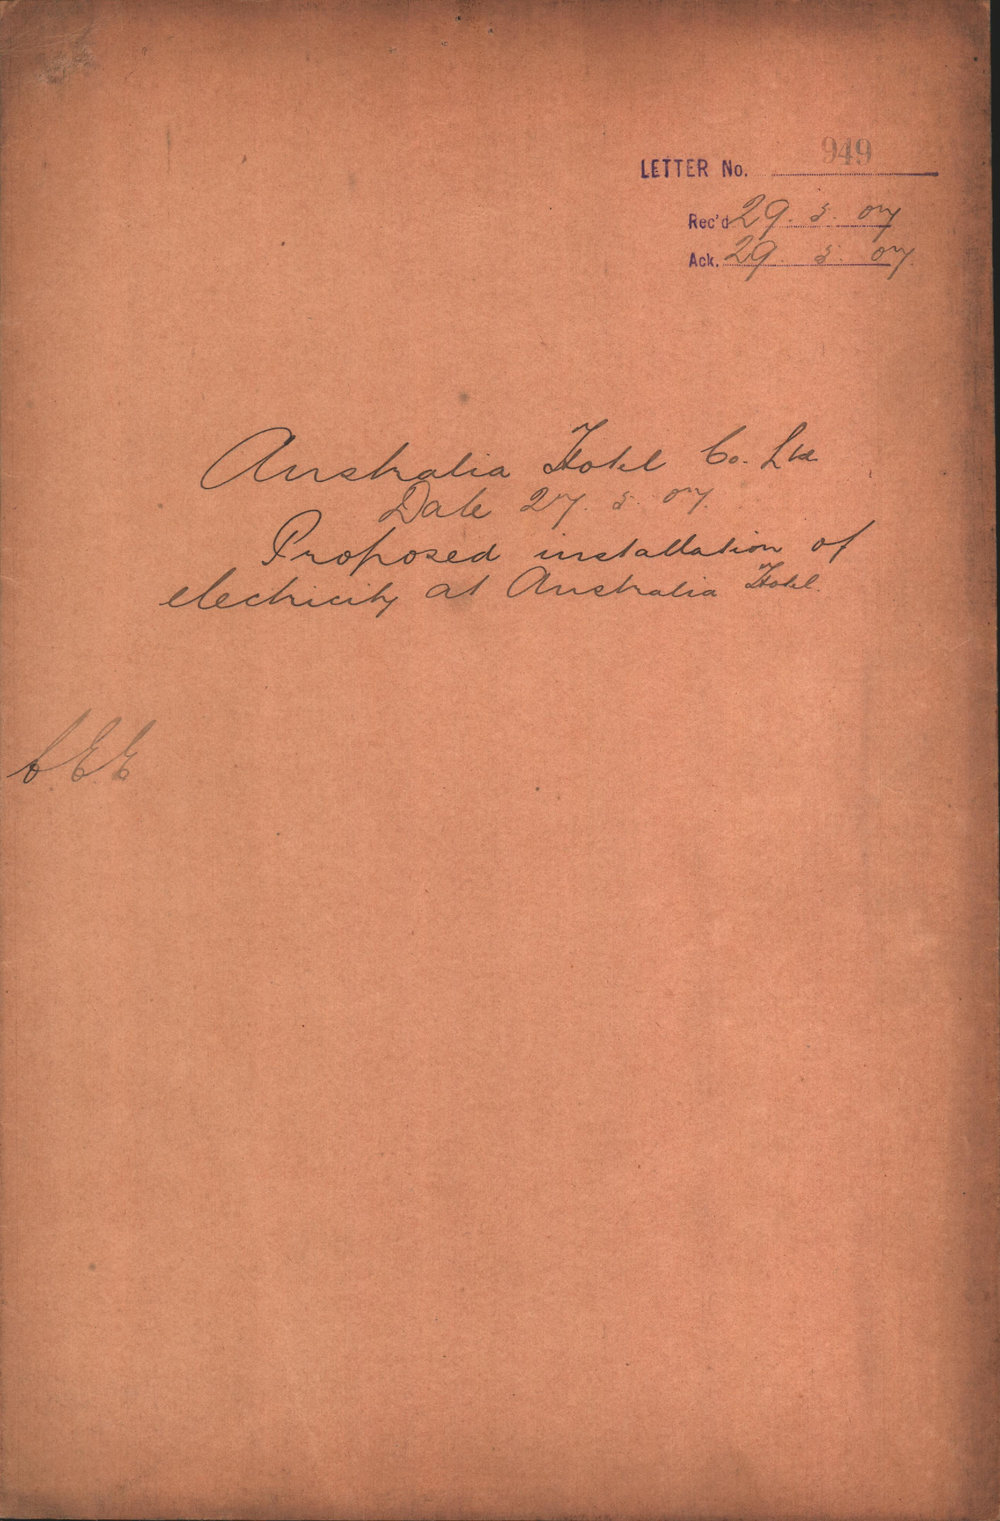 LETTER No. 949
Rec'd 29. 5. 07
Ack. 29. 5. 07.
Australia Hotel Co. Ltd
Date 27. 5. 07.
Proposed installation of
electricity at Australia Hotel.
C.E.E